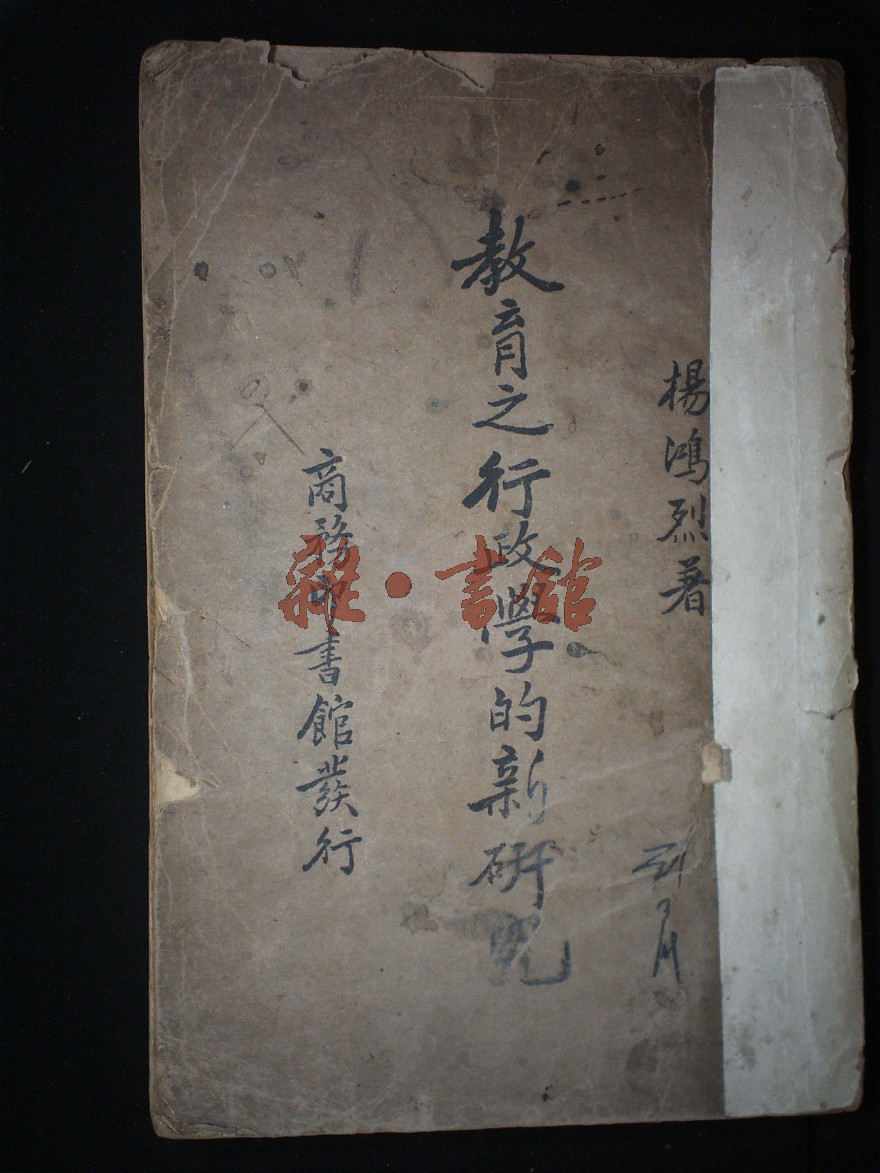 楊鴻烈著
教育之行政學的新研究
商務印書館發行
雜·書館